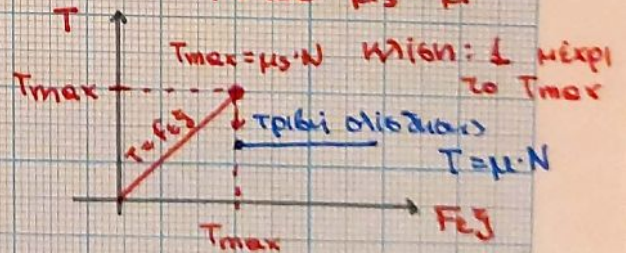 T
Tmax = μs·N
κλίση: 1 μέχρι
το Tmax
Tmax
T = Fεξ
τριβή ολίσθησης
T = μ·N
Fεξ
Tmax